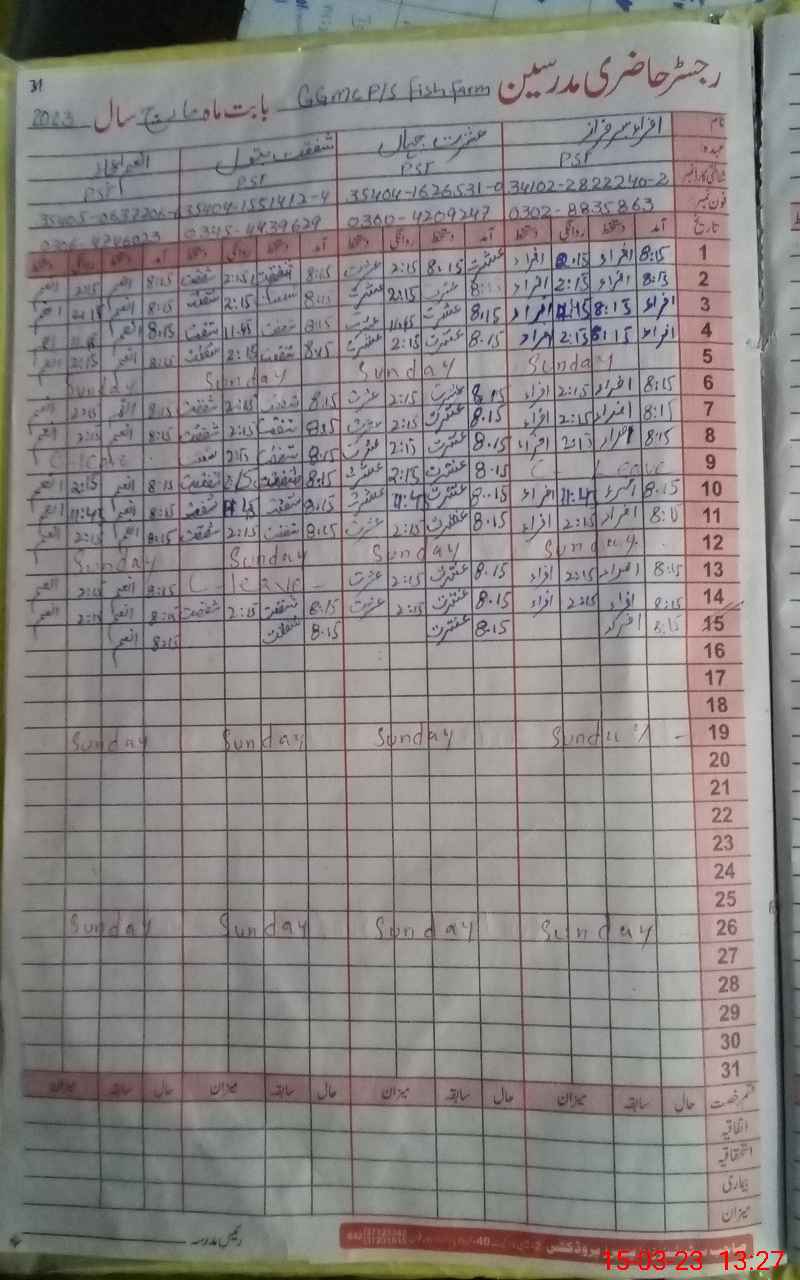 31
رجسٹر حاضری مدرسین GGMC P/S Fish Farm بابت ماہ مارچ سال 2023
نام افراء سرفراز عشرت جہاں شفقت بتول
عہدہ PST PST PST PST
شناختی کارڈ نمبر 34102-2822240-2 35404-1626531-0 35404-1551412-4
فون نمبر 0302-8835863 0300-4209247 0345-4439629 0306-4746023
تاریخ آمد دستخط روانگی دستخط آمد دستخط روانگی دستخط آمد دستخط روانگی دستخط آمد دستخط روانگی دستخط
1 8:15 افراء 2:15 افراء 8.15 عشرت 2:15 عشرت 8:15 شفقت 2:15 شفقت 8:15 انعم 2:15 انعم
2 8:15 افراء 2:15 افراء 8:15 عشرت 2:15 عشرت 8:15 2:15 شفقت 8:15 انعم 2:15 انعم
3 8:15 افراء 11:45 افراء 8.15 عشرت 11:45 عشرت 8:15 شفقت 11:45 شفقت 8:15 انعم 11:45 انعم
4 8:15 افراء 2:15 افراء 8.15 عشرت 2:15 عشرت 8:15 شفقت 2:15 شفقت 8:15 انعم 2:15 انعم
5 Sunday Sunday Sunday Sunday
6 8:15 افراء 2:15 افراء 8.15 عشرت 2:15 عشرت 8:15 شفقت 2:15 شفقت 8:15 انعم 2:15 انعم
7 8:15 افراء 2:15 افراء 8.15 عشرت 2:15 عشرت 8:15 شفقت 2:15 شفقت 8:15 انعم 2:15 انعم
8 8:15 افراء 2:15 افراء 8.15 عشرت 2:15 عشرت 8:15 شفقت 2:15 شفقت C-leave
9 C - Leave 8.15 عشرت 2:15 عشرت 8:15 شفقت 2:15 شفقت 8:15 انعم 2:15 انعم
10 8:15 افراء 11:4 افراء 8.15 عشرت 11:4 عشرت 8:15 شفقت شفقت 8:15 انعم 11:45 انعم
11 8:15 افراء 2:15 افراء 8.15 عشرت 2:15 عشرت 8:15 شفقت 2:15 شفقت 8:15 انعم 2:15 انعم
12 Sunday Sunday Sunday Sunday
13 8:15 افراء 2:15 افراء 8.15 عشرت 2:15 عشرت C-leave - 8:15 انعم 2:15 انعم
14 8:15 افراء 2:15 افراء 8.15 عشرت 2:15 عشرت 8:15 شفقت 2:15 شفقت 8:15 انعم 2:15 انعم
15 8:15 افراء 8.15 عشرت 8.15 شفقت 8:15 انعم
16
17
18
19 Sunday Sunday Sunday Sunday
20
21
22
23
24
25
26 Sunday Sunday Sunday Sunday
27
28
29
30
31
قسم رخصت حال سابقہ میزان حال سابقہ میزان حال سابقہ میزان حال سابقہ میزان
اتفاقیہ
استحقاقیہ
بیماری
میزان
رئیس مدرسہ
15-03-23 13:27